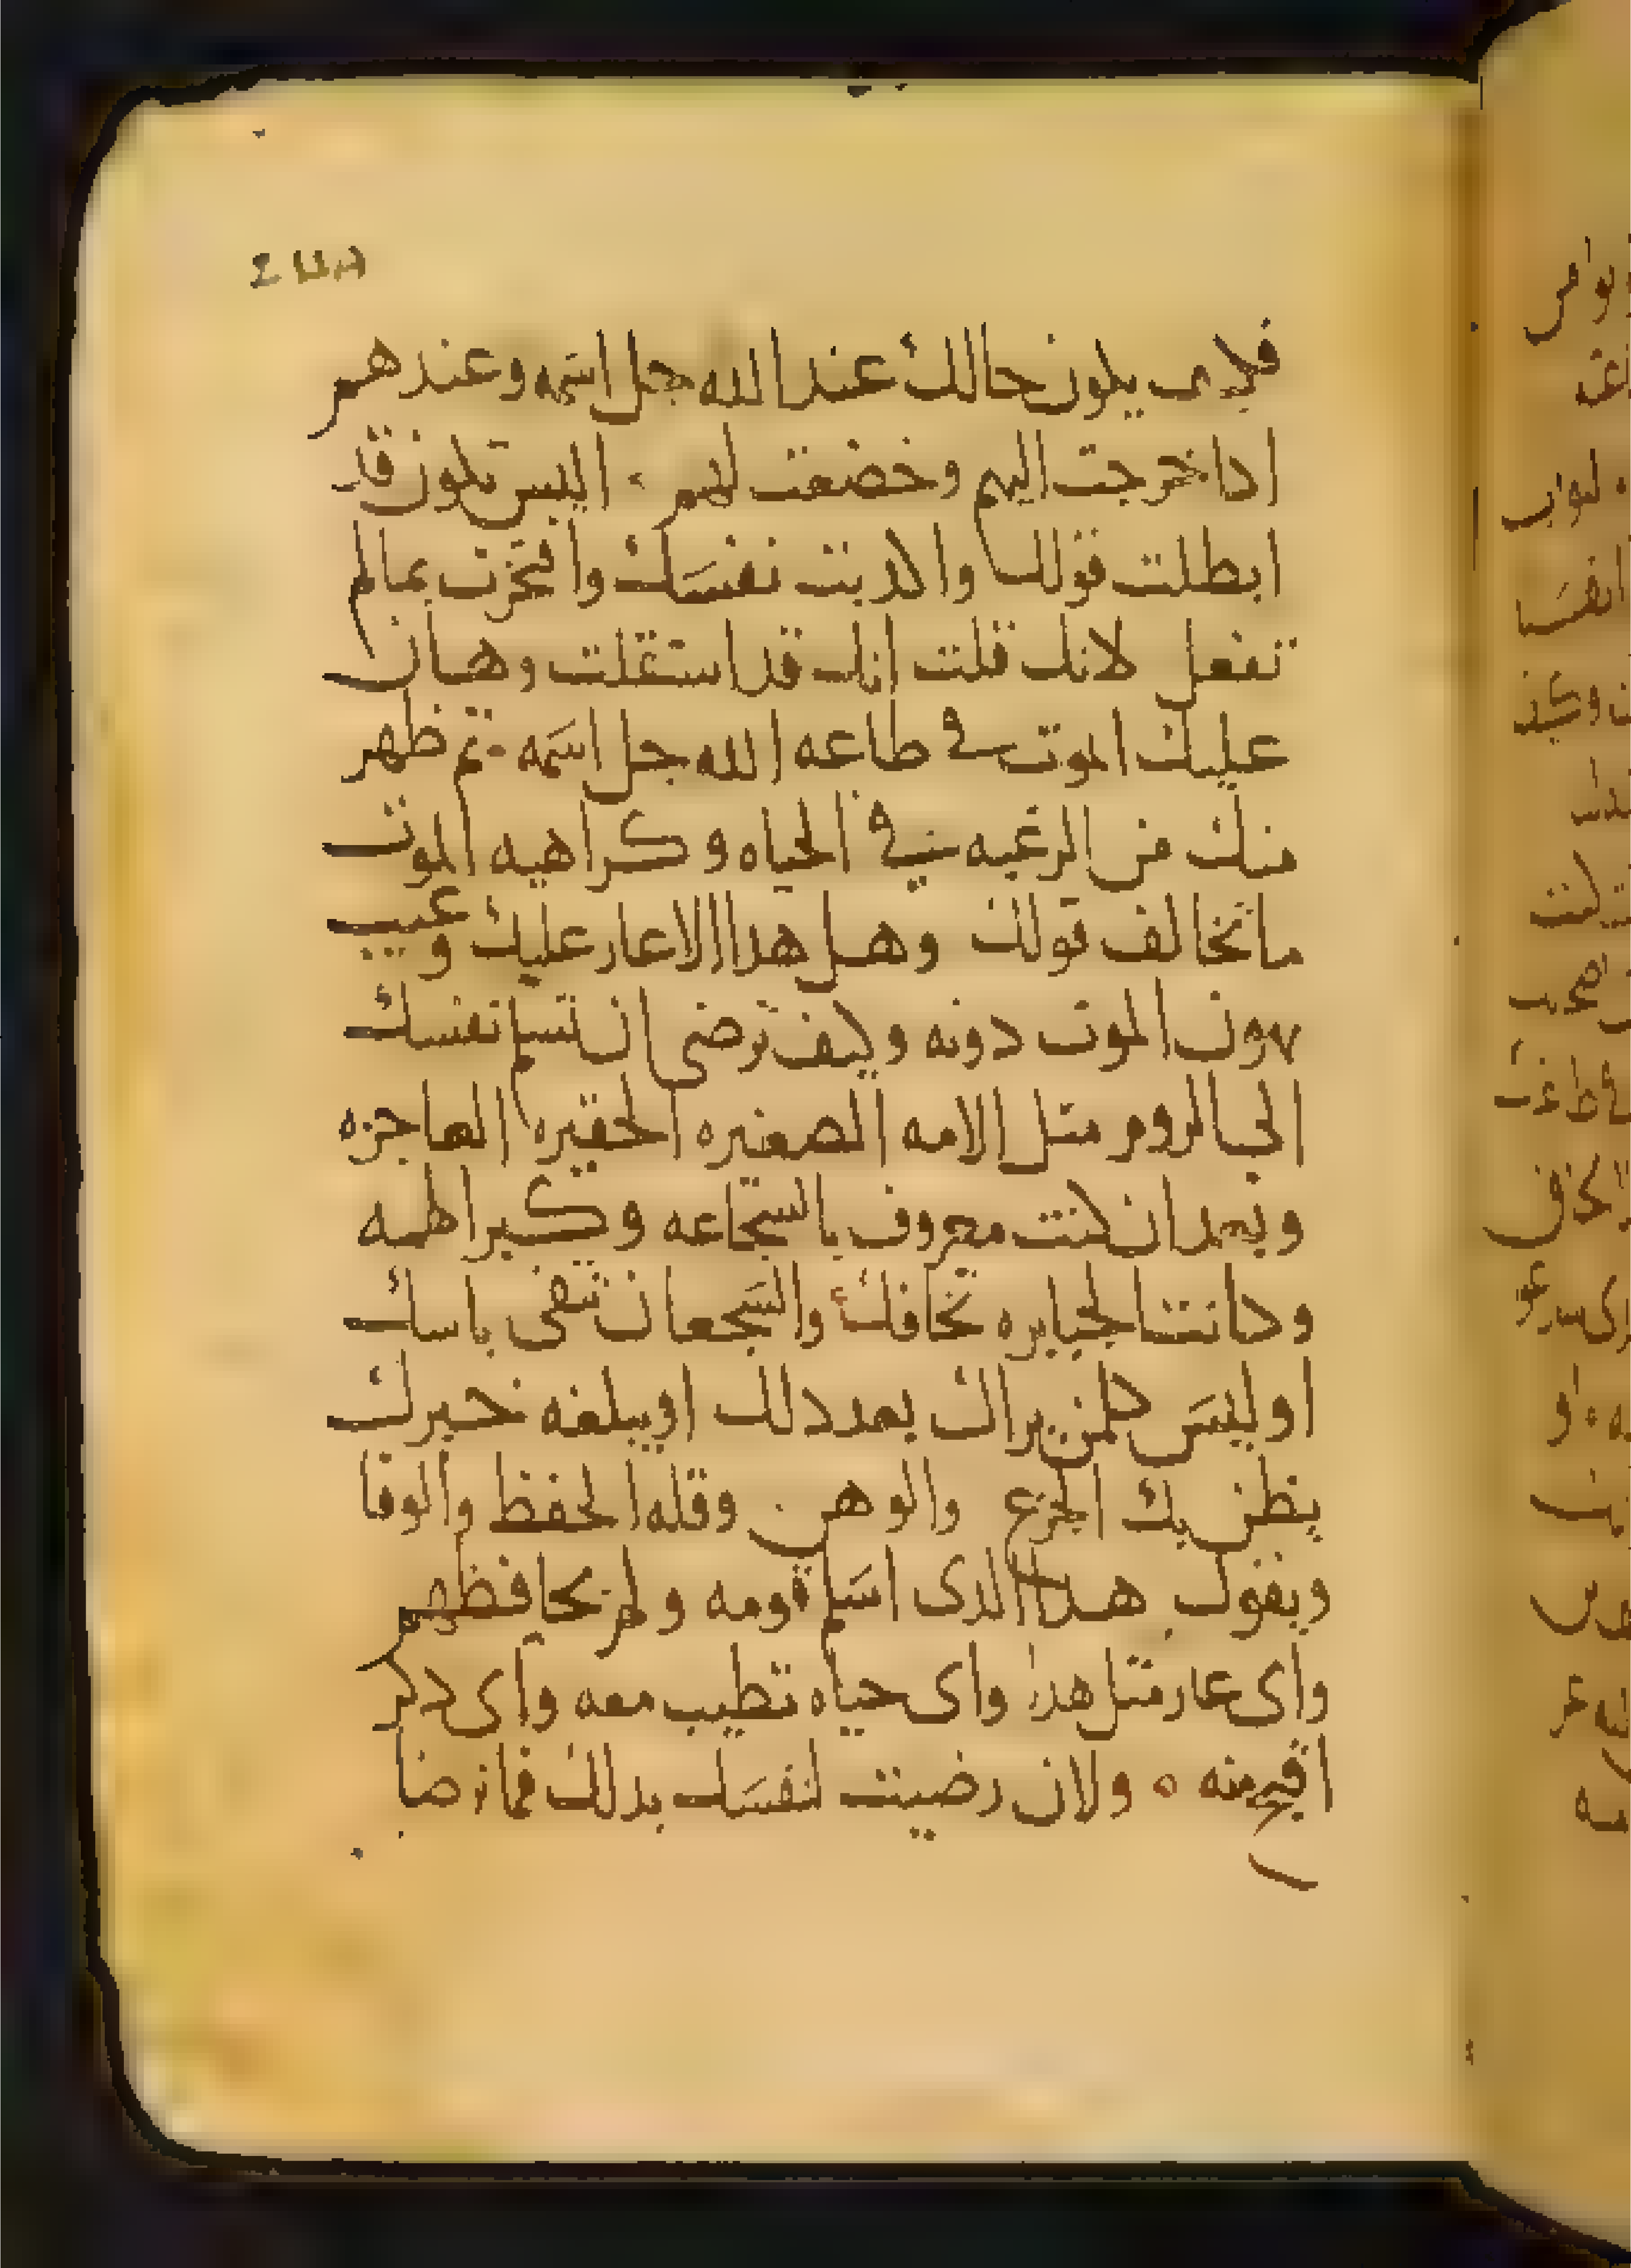 يكون حالك عند الله جل اسمه وعندهم
ادا خرجت اليهم وخضعت لهم اليس تكون قد
ابطلت قولك واكدبت نفسك وافتخرت بمالم
تفعل لانك قلت انك قد استقلت وهان
عليك الموت في طاعه الله جل اسمه ثم ظهر
منك من الرغبه في الحياه وكراهيه الموت
ما تخالف قولك وهل هدا الا عار عليك وعيب
يهون الموت دونه وكيف ترضى ان تسلم نفسك
الي الروم متل الامه الصغيره الحقيره العاجزه
وبعد ان كنت معروف بالشجاعه وكبر الهمه
وكانت الجبابره تخافك والشجعان تتقى باسك
اوليس كلمن يراك بعد دلك او يبلغه خبرك
يظن بك الجزع والوهن وقله الحفظ والوفا
ويقول هدا الدى اسلم قومه ولم يحافظهم
واى عار متل هدا واى حياه تطيب معه واى دكر
اقبح منه ولان رضيت لنفسك بدلك فما نرضا